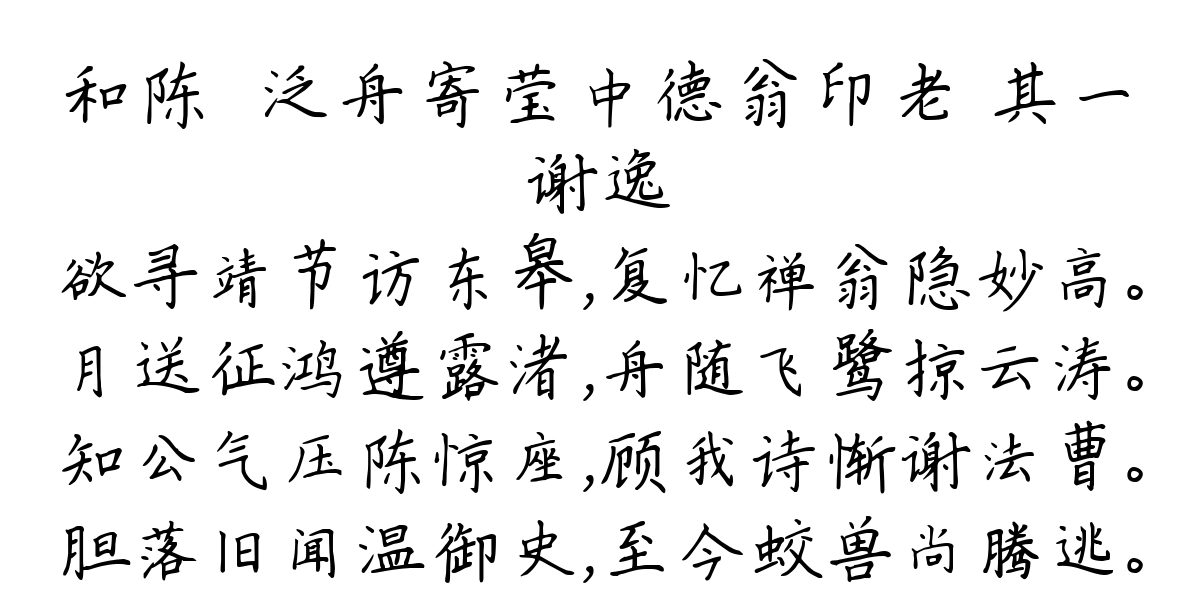 和陈 泛舟寄莹中德翁印老 其一
谢逸
欲寻靖节访东皋,复忆禅翁隐妙高。
月送征鸿遵露渚,舟随飞鹭掠云涛。
知公气压陈惊座,顾我诗惭谢法曹。
胆落旧闻温御史,至今蛟兽尚腾逃。